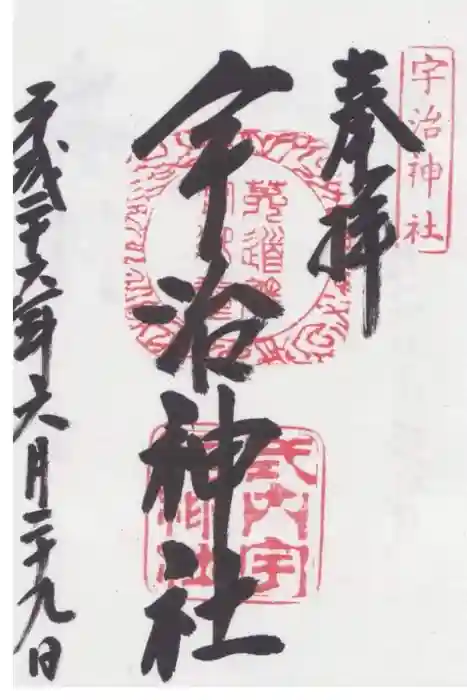 宇治神社
奉拝
宇治神社
式内宇
治神社
平成二十六年六月二十九日